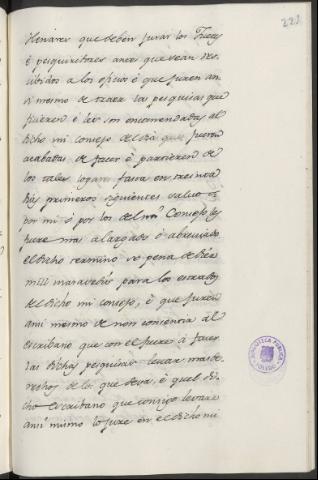 221
Henares que deben jurar los Juezes
é pesquiridores antes que sean res-
cibidos a los oficios é que juren an-
si mesmo de traer las pesquisas que
fizieren é les son encomendadas al
Dicho mi consejo de Dia que fueren
acabadas de facer é partieren de
los tales logares fasta en treinta
Dias primeros siguientes salvo si
por mi ó por los del mi Consejo les
fuere mas alargado ó abreviado
el Dicho termino so pena de Diez
mill maravedis para los estrados
del Dicho mi consejo, é que juren
ansi mesmo de non consentir al
escribano que con el fuere a facer
las Dichas pesquisas levar mas de-
rechos de los que deva, é quel di-
cho Escribano que consigo levare
ansi mismo lo jure en el Dicho mi
BIBLIOTECA PUBLICA
TOLEDO